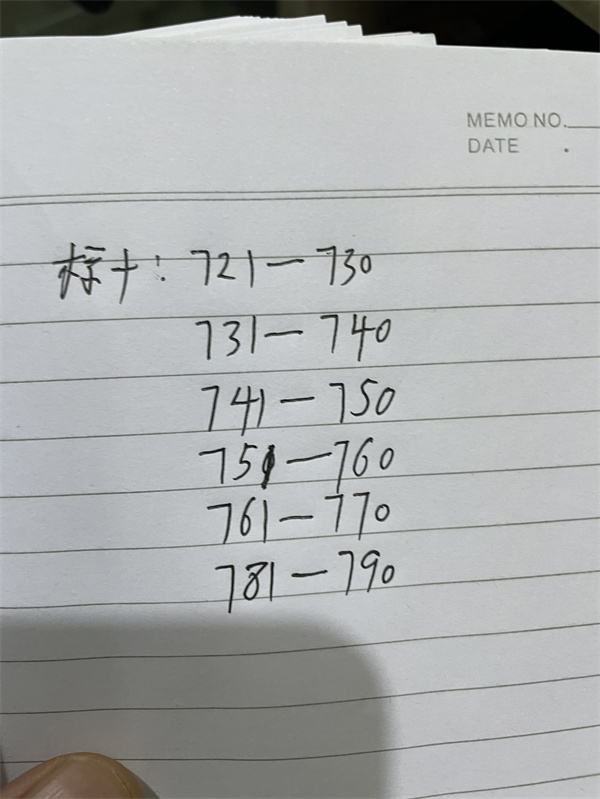 MEMO NO.
DATE .
标十: 721—730
731—740
741—750
751—760
761—770
781—790